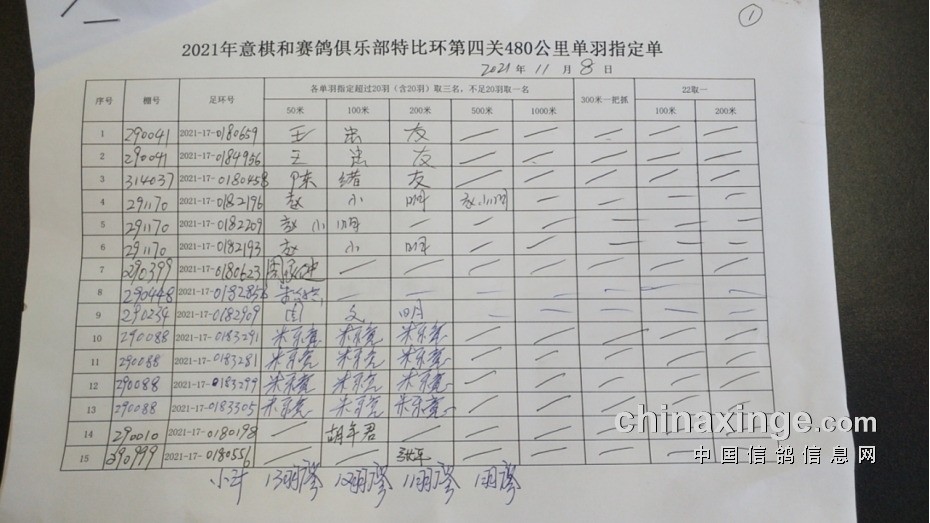 ①
2021年意棋和赛鸽俱乐部特比环第四关480公里单羽指定单
2021年11月8日
序号 棚号 足环号 各单羽指定超过20羽（含20羽）取三名，不足20羽取一名 300米一把抓 22取一
50米 100米 200米 500米 1000米 100米 200米
1 290041 2021-17-0180659 王 忠 友 — — — — —
2 290041 2021-17-0184956 王 忠 友 — — — — —
3 314037 2021-17-0180458 陈 绪 友 — — — — —
4 291170 2021-17-0182196 赵 小 明 赵小明 — — — —
5 291170 2021-17-0182209 赵小明 — — — — — — —
6 291170 2021-17-0182193 赵 小 明 — — — — —
7 290399 2021-17-0180623 — — — — — — —
8 290448 2021-17-0182856 — — — — — — —
9 290234 2021-17-0182909 文 明 — — — — —
10 290088 2021-17-0183291 — — — — —
11 290088 2021-17-0183281 — — — — —
12 290088 2021-17-0183299 — — — — —
13 290088 2021-17-0183305 — — — — —
14 290010 2021-17-0180198 — 胡年君 — — — — — —
15 290999 2021-17-0180556 — — — — — — —
小计 13羽 12羽 11羽 1羽
chinaxinge.com
中国信鸽信息网